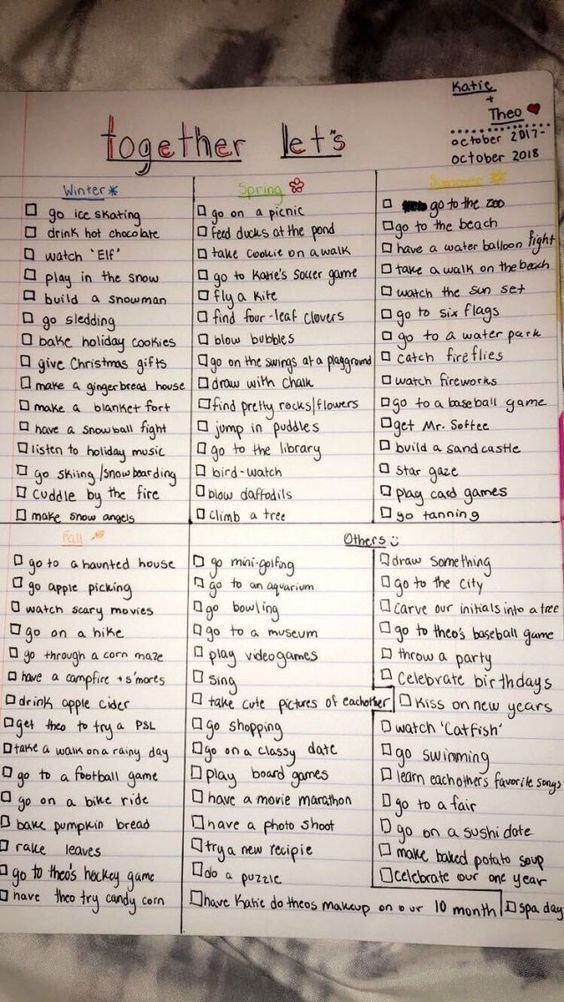 together let's
Katie
+
Theo
october 2017-
october 2018
Winter
go ice skating
drink hot chocolate
watch 'Elf'
play in the snow
build a snowman
go sledding
bake holiday cookies
give Christmas gifts
make a gingerbread house
make a blanket fort
have a snowball fight
listen to holiday music
go skiing/snowboarding
cuddle by the fire
make snow angels
Spring
go on a picnic
feed ducks at the pond
take cookie on a walk
go to Katie's soccer game
fly a kite
find four-leaf clovers
blow bubbles
go on the swings at a playground
draw with chalk
find pretty rocks/flowers
jump in puddles
go to the library
bird-watch
blow daffodils
climb a tree
Summer
go to the zoo
go to the beach
have a water balloon fight
take a walk on the beach
watch the sun set
go to six flags
go to a water park
catch fireflies
watch fireworks
go to a baseball game
get Mr. Softee
build a sandcastle
star gaze
play card games
go tanning
Fall
go to a haunted house
go apple picking
watch scary movies
go on a hike
go through a corn maze
have a campfire + s'mores
drink apple cider
get theo to try a PSL
take a walk on a rainy day
go to a football game
go on a bike ride
bake pumpkin bread
rake leaves
go to theo's hockey game
have theo try candy corn
Others
go mini-golfing
go to an aquarium
go bowling
go to a museum
play videogames
sing
take cute pictures of eachother
go shopping
go on a classy date
play board games
have a movie marathon
have a photo shoot
try a new recipie
do a puzzle
have Katie do theos makeup on our 10 month
draw something
go to the city
carve our initials into a tree
go to theo's baseball game
throw a party
celebrate birthdays
kiss on new years
watch 'Catfish'
go swimming
learn eachothers favorite songs
go to a fair
go on a sushi date
make baked potato soup
celebrate our one year
spa day